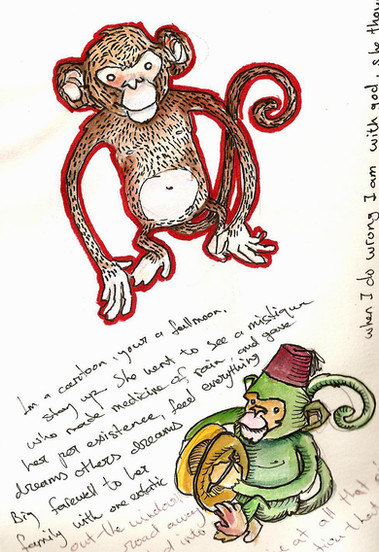 when I do wrong I am with god, she thou
Im a cartoon, your a full moon,
stay up She went to see a mistique
who made medicine of rain and gave
her per existence, feel everything
dreams others dreams
Big farewell to her
family with one extatic
out the window
road away
d into at all that
tion that